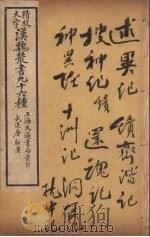 述異記 續齊諧記
搜神記 續 還魂記
神異經 十洲記 洞冥
枕中
精校
大字
漢魏叢書九十六種
上海大通書局
武進唐駝署